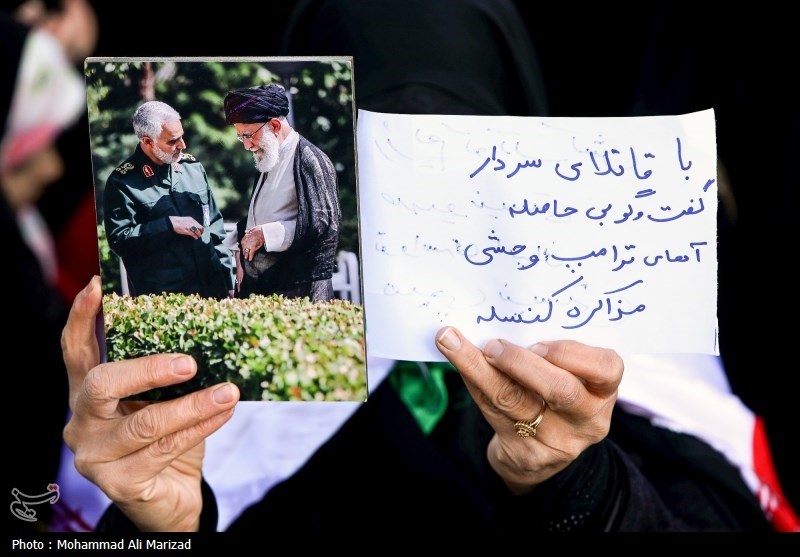 با قاتلای سردار
گفت و گو بی حاصله
آهای ترامپ وحشی
مذاکره کنسله
تسنیم
Photo : Mohammad Ali Marizad